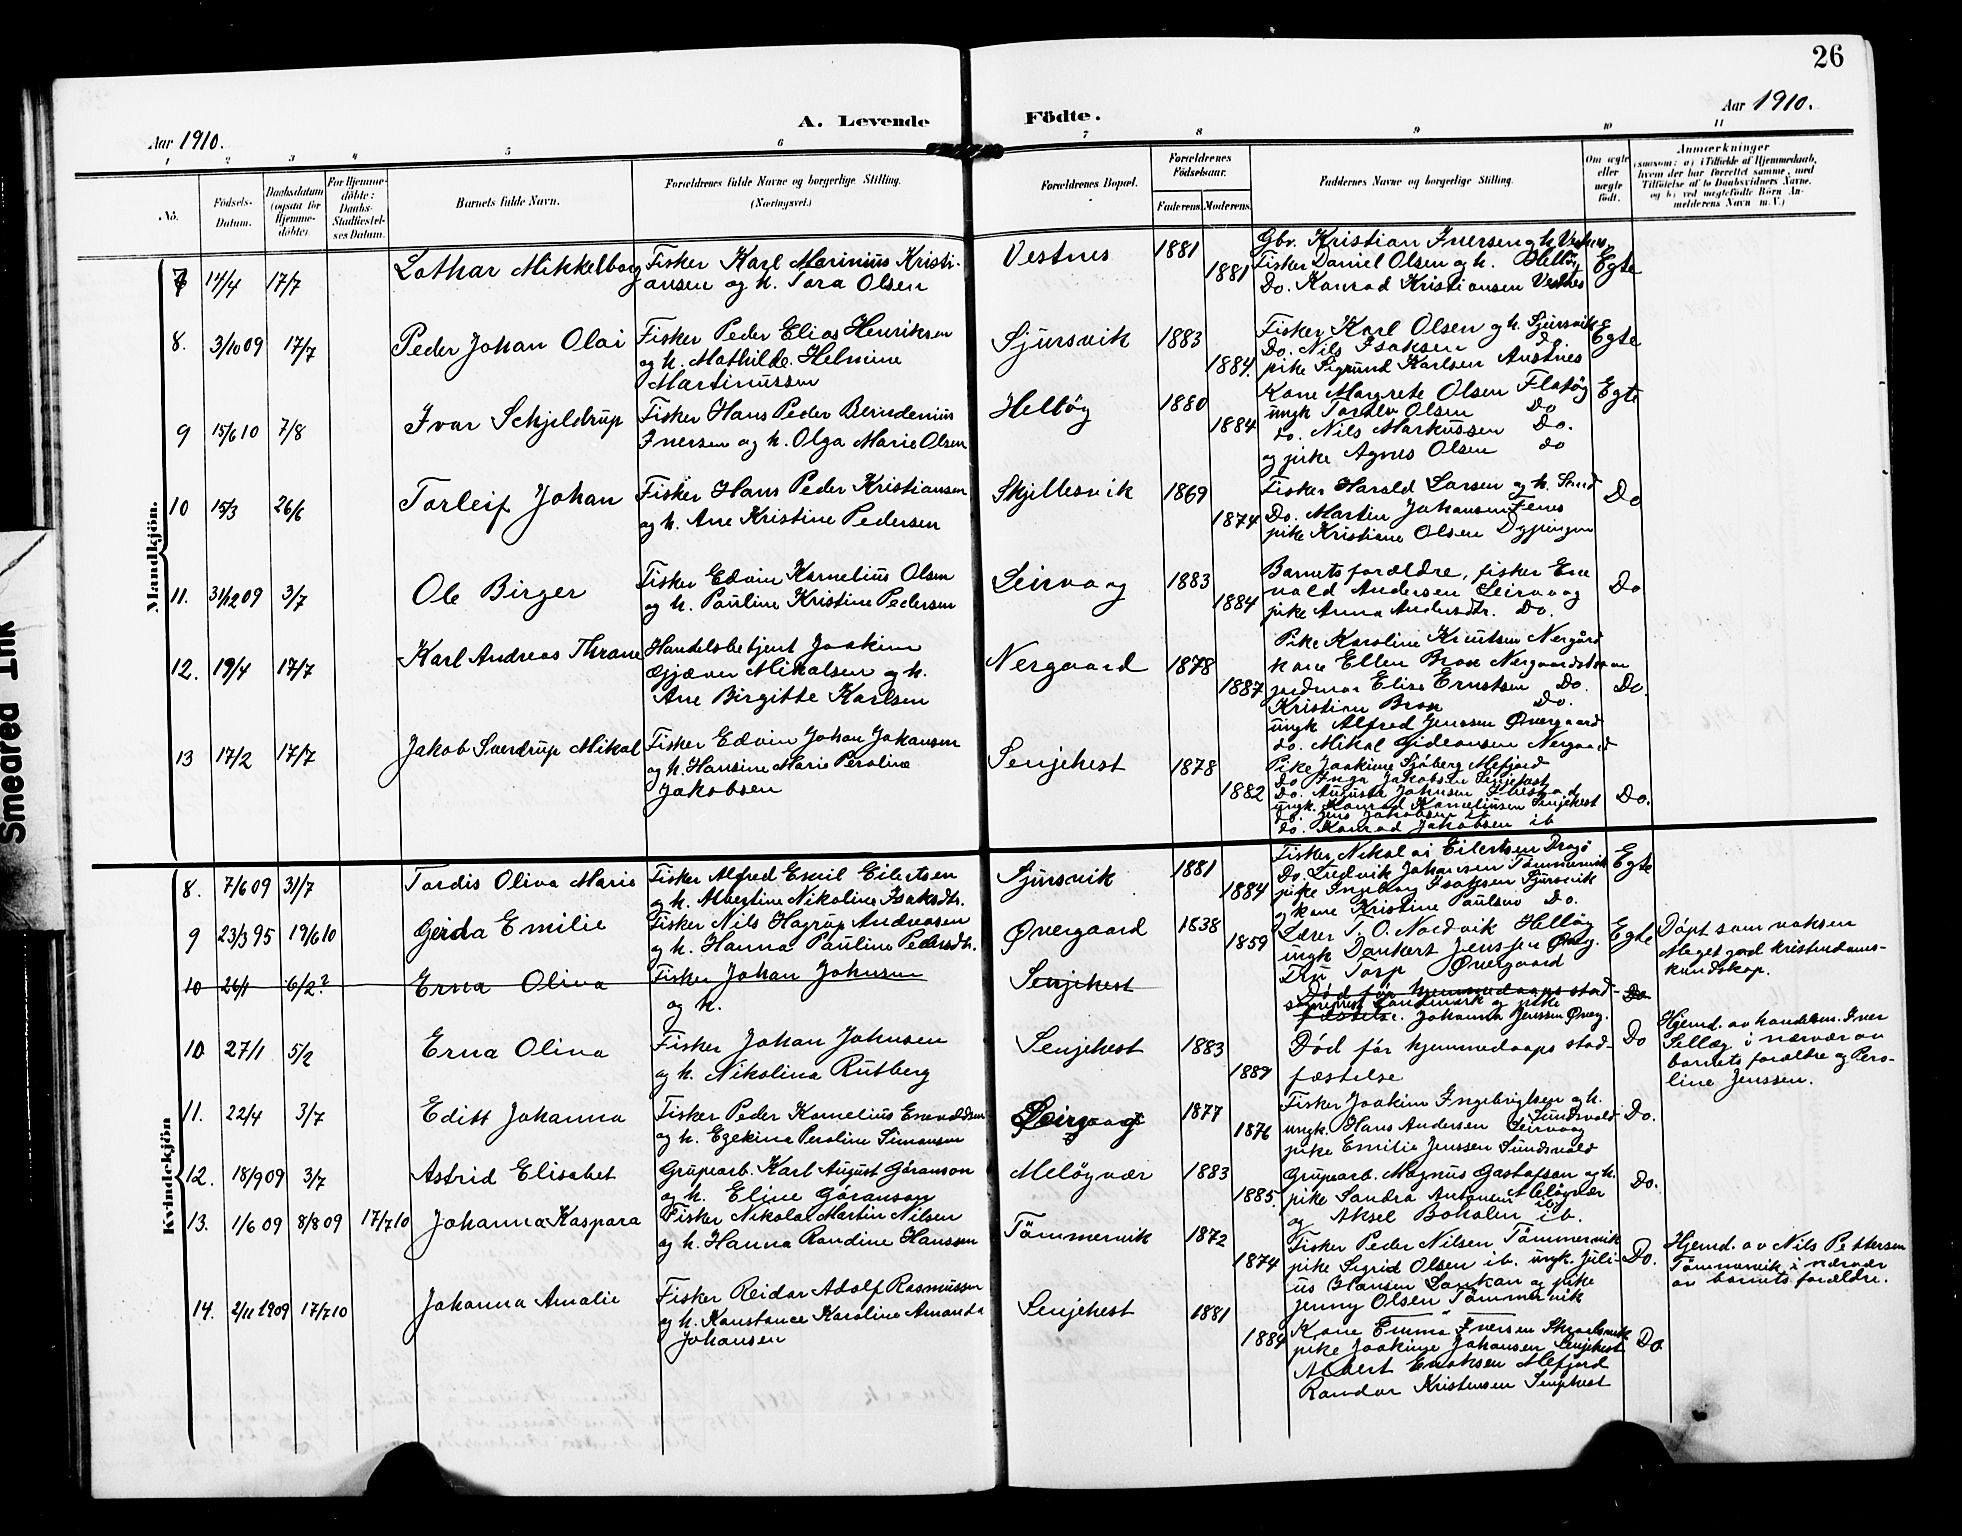 26
Aar 1910.
A. Levende Födte.
Aar 1910.
1 2 3 4 5 6 7 8 9 10 11
No.
Födsels-
Datum.
Daabsdatum
(ogsaa for
Hjemme-
döbte)
For Hjemme-
döbte:
Daabs-
Stadfæstel-
ses Datum.
Barnets fulde Navn.
Forældrenes fulde Navne og borgerlige Stilling.
(Næringsvei.)
Forældrenes Bopæl.
Forældrenes
Födselsaar.
Faderens. Moderens.
Faddernes Navne og borgerlige Stilling.
Om ægte
eller
uægte
født.
Anmærkninger
(saasom: a) i Tilfælde af Hjemmedaab,
hvem der har forrettet samme, med
Tilføielse af to Daabsvidners Navne,
og b) ved uægtefødte Börn An-
melderens Navn m. V.)
Mandkjön.
7 14/4 17/7
Lothar Mikkelborg
Fisker Karl Marinius Kristi-
ansen og h. Tora Olsen
Vestnes
1881
1881
Gbr. Kristian Iversen og h. Vestnes
Fisker Daniel Olsen og h. Helløy
Do. Konrad Kristiansen Vestnes
Egte
8. 3/10 09 17/7
Peder Johan Olai
Fisker Peder Elias Henriksen
og h. Mathilde Helmine
Martinussen
Sjursvik
1883
1884.
Fisker Karl Olsen og h. Sjursvik
Do. Nils Isaksen Do.
pike Sigrund Karlsen Austnes
Egte
9 15/6 10 7/8
Ivar Schjeldrup
Fisker Hans Peder Berndenius
Iversen og h. Olga Marie Olsen
Helløy
1880
1884
Kone Margrete Olsen Flatøy
ungk Toralv Olsen Do
do. Nils Markussen Do.
og pike Agnes Olsen do
Egte
10 15/3 26/6
Torleif Johan
Fisker Hans Peder Kristiansen
og h. Ane Kristine Pedersen
Skjellesvik
1869
1874
Fisker Harald Larsen og h. Sand
Do. Martin Johansen Fenes
pike Kristiane Olsen
Do
11. 31/12 09 3/7
Ole Birger
Fisker Edvin Kornelius Olsen
og h. Pauline Kristine Pedersen
Leirvaag
1883
1884
Barnets forældre, fisker Ene
vold Andersen Leirvaag
pike Anna Andersdtr. Do.
Do
12. 19/4 17/7
Karl Andreas Thrane
Handelsbetjent Joakim
Gjæver Mikalsen og h.
Ane Birgitte Karlsen
Nergaard
1878
1887
Pike Karoline Knutsen Nergård
kone Ellen Brox
jordmor Elise Ernstsen Do.
Kristian Brox Do.
ungk Alfred Jenssen Øvergaard
do. Mikal Gideonsen Nergaard
Do.
13 17/2 17/7
Jakob Sverdrup Mikal
Fisker Edvin Johan Johansen
og h. Hansine Marie Peroline
Jakobsen
Senjehest
1878
1882
Pike Joakime Sjöberg Mefjord
Do Inga Jakobsen Senjehest
Do. Augusta Johnsen
ungk. Konrad Korneliussen Senjehest
do. Jens Jakobsen ib
do. Konrad Jakobsen ib
Do.
Kvindekjön
8. 7/6 09 31/7
Tordis Oliva Marie
Fisker Alfred Emil Eilertsen
og h. Albertine Nikoline Isaksdtr.
Sjursvik
1881
1884
Fisker Nikolai Eilertsen Dragö
Do. Ludvik Johansen Tömmervik
pike Ingeborg Isaksen Sjursvik
og kone Kristine Paulsen Do.
Egte
9 23/3 95 19/6 10
Gerda Emilie
Fisker Nils Hagrup Andreasen
og h. Hanna Pauline Pedersdtr.
Øvergaard
1838
1859
Lærer I. O. Nordvik Helløy
ungk Dankert Jenssen Øverg.
Fru Torp Øvergaard
Egte
Döpt som voksen
Meget god kristendoms-
kundskap.
10 26/1 6/2?
Erna Oliva
Fisker Johan Johnsen
og h.
Senjehest
Död før hjemmedaaps stad-
fæstelse. Johanna Jenssen Øverg.
Do
10 27/1 5/2
Erna Oliva
Fisker Johan Johnsen
og h. Nikolina Rutberg
Senjehest
1883
1889
Död før hjemmedaaps stad-
fæstelse
Do
Hjemd. av handelsm. Iver
Sellæg i nærvær av
barnets forældre og Pero-
line Jenssen.
11. 22/4 3/7
Editt Johanna
Fisker Peder Kornelius Enevoldsen
og h. Egekina Peroline Simonsen
Leirvaag
1877
1876
Fisker Joakim Ingebrigtsen og h.
ungk. Hans Andersen Leirvaag Sundsvold
pike Emilie Jenssen Sundsvold
Do.
12. 18/9 09 3/7
Astrid Elisabet
Grubearb. Karl August Göranson
og h. Eline Göranson
Meløyvær
1883
1885.
Grubearb. Magnus Gustafson og h.
pike Sandra Antonsen Meløyvær
og Aksel Boholen ib.
Do.
13. 1/6 09 8/8 09 17/7 10
Johanna Kaspara
Fisker Nikolai Martin Nilsen
og h. Hanna Randine Hanssen
Tömmervik
1872
1874
Fisker Peder Nilsen Tömmervik
pike Sigrid Olsen ib. ungk. Juli-
us Hansen Lankan og pike
Jenny Olsen Tömmervik
Do.
Hjemd. av Nils Pettersen
Tömmervik i nærvær
av barnets forældre.
14. 2/11 1909 17/7 10
Johanna Amalie
Fisker Reidar Adolf Rasmussen
og h. Konstance Karoline Amanda
Johansen
Senjehest
1881
1884
Kone Emma Iversen
pike Joakime Johansen Senjehest
Albert Enoksen Mefjord
Randor Kristensen Senjehest
Do
Smeared Ink